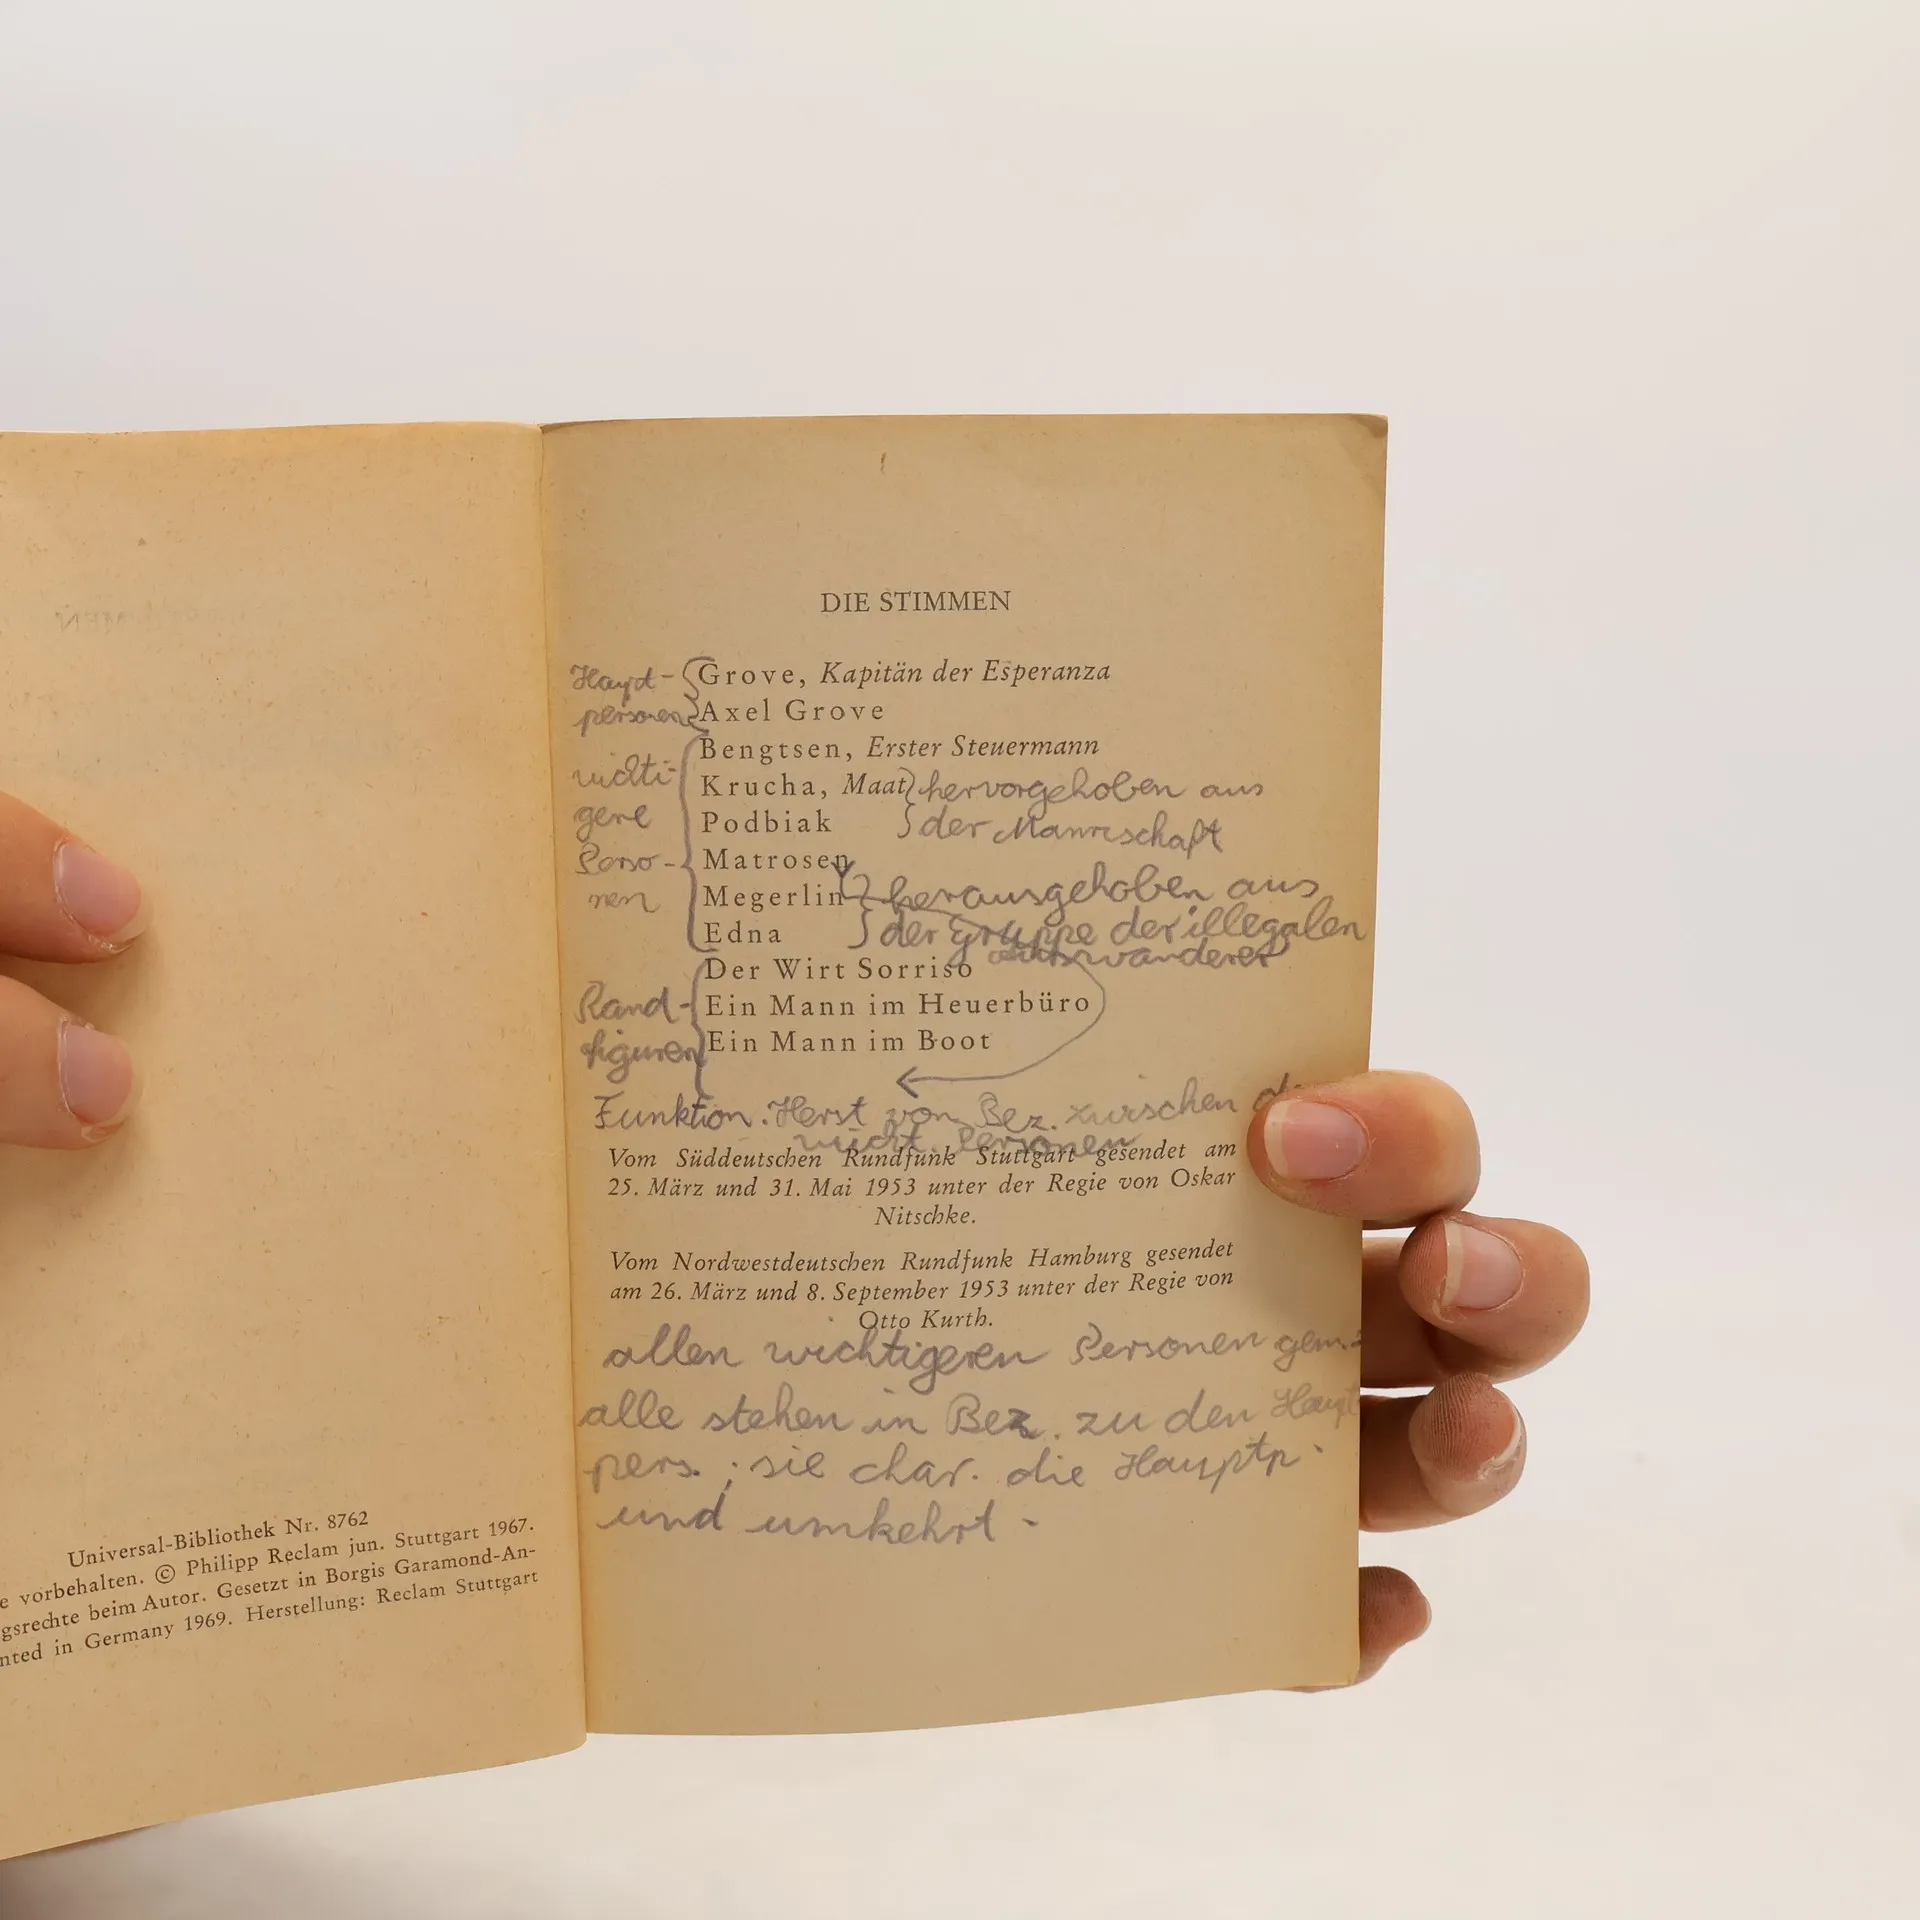 Universal-Bibliothek Nr. 8762
e vorbehalten. © Philipp Reclam jun. Stuttgart 1967.
gsrechte beim Autor. Gesetzt in Borgis Garamond-An-
nted in Germany 1969. Herstellung: Reclam Stuttgart
DIE STIMMEN
Haupt- Grove, Kapitän der Esperanza
personen Axel Grove
Bengtsen, Erster Steuermann
wichti- Krucha, Maat hervorgehoben aus
gere Podbiak der Mannschaft
Perso- Matrosen
nen Megerlin herausgehoben aus
Edna der Gruppe der illegalen
auswanderer
Der Wirt Sorriso
Rand- Ein Mann im Heuerbüro
figuren Ein Mann im Boot
Funktion: Herst von Bez. zwischen
wicht. Personen
Vom Süddeutschen Rundfunk Stuttgart gesendet am
25. März und 31. Mai 1953 unter der Regie von Oskar
Nitschke.
Vom Nordwestdeutschen Rundfunk Hamburg gesendet
am 26. März und 8. September 1953 unter der Regie von
Otto Kurth.
allen wichtigeren Personen gem.:
alle stehen in Bez. zu den Haupt
pers.; sie char. die Hauptp.
und umkehrt.